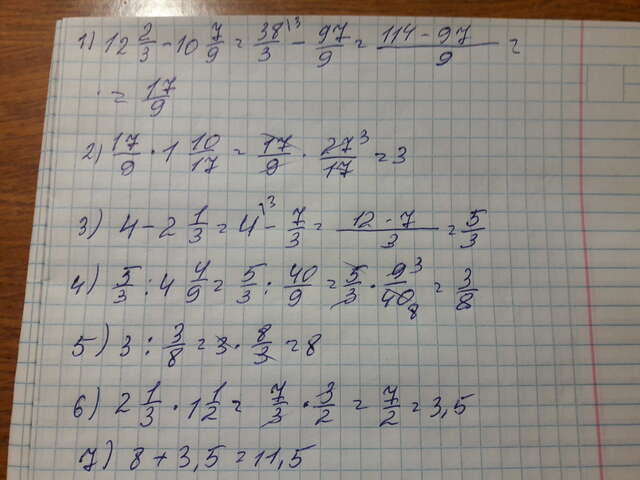 1) 12 2/3 - 10 7/9 = 38\3/3 - 97/9 = (114 - 97)/9 =
= 17/9
2) 17/9 · 1 10/17 = 17/9 · 27 3/17 = 3
3) 4 - 2 1/3 = 4\3 - 7/3 = (12 - 7)/3 = 5/3
4) 5/3 : 4 4/9 = 5/3 : 40/9 = 5/3 · 9 3/40 8 = 3/8
5) 3 : 3/8 = 3 · 8/3 = 8
6) 2 1/3 · 1 1/2 = 7/3 · 3/2 = 7/2 = 3,5
7) 8 + 3,5 = 11,5